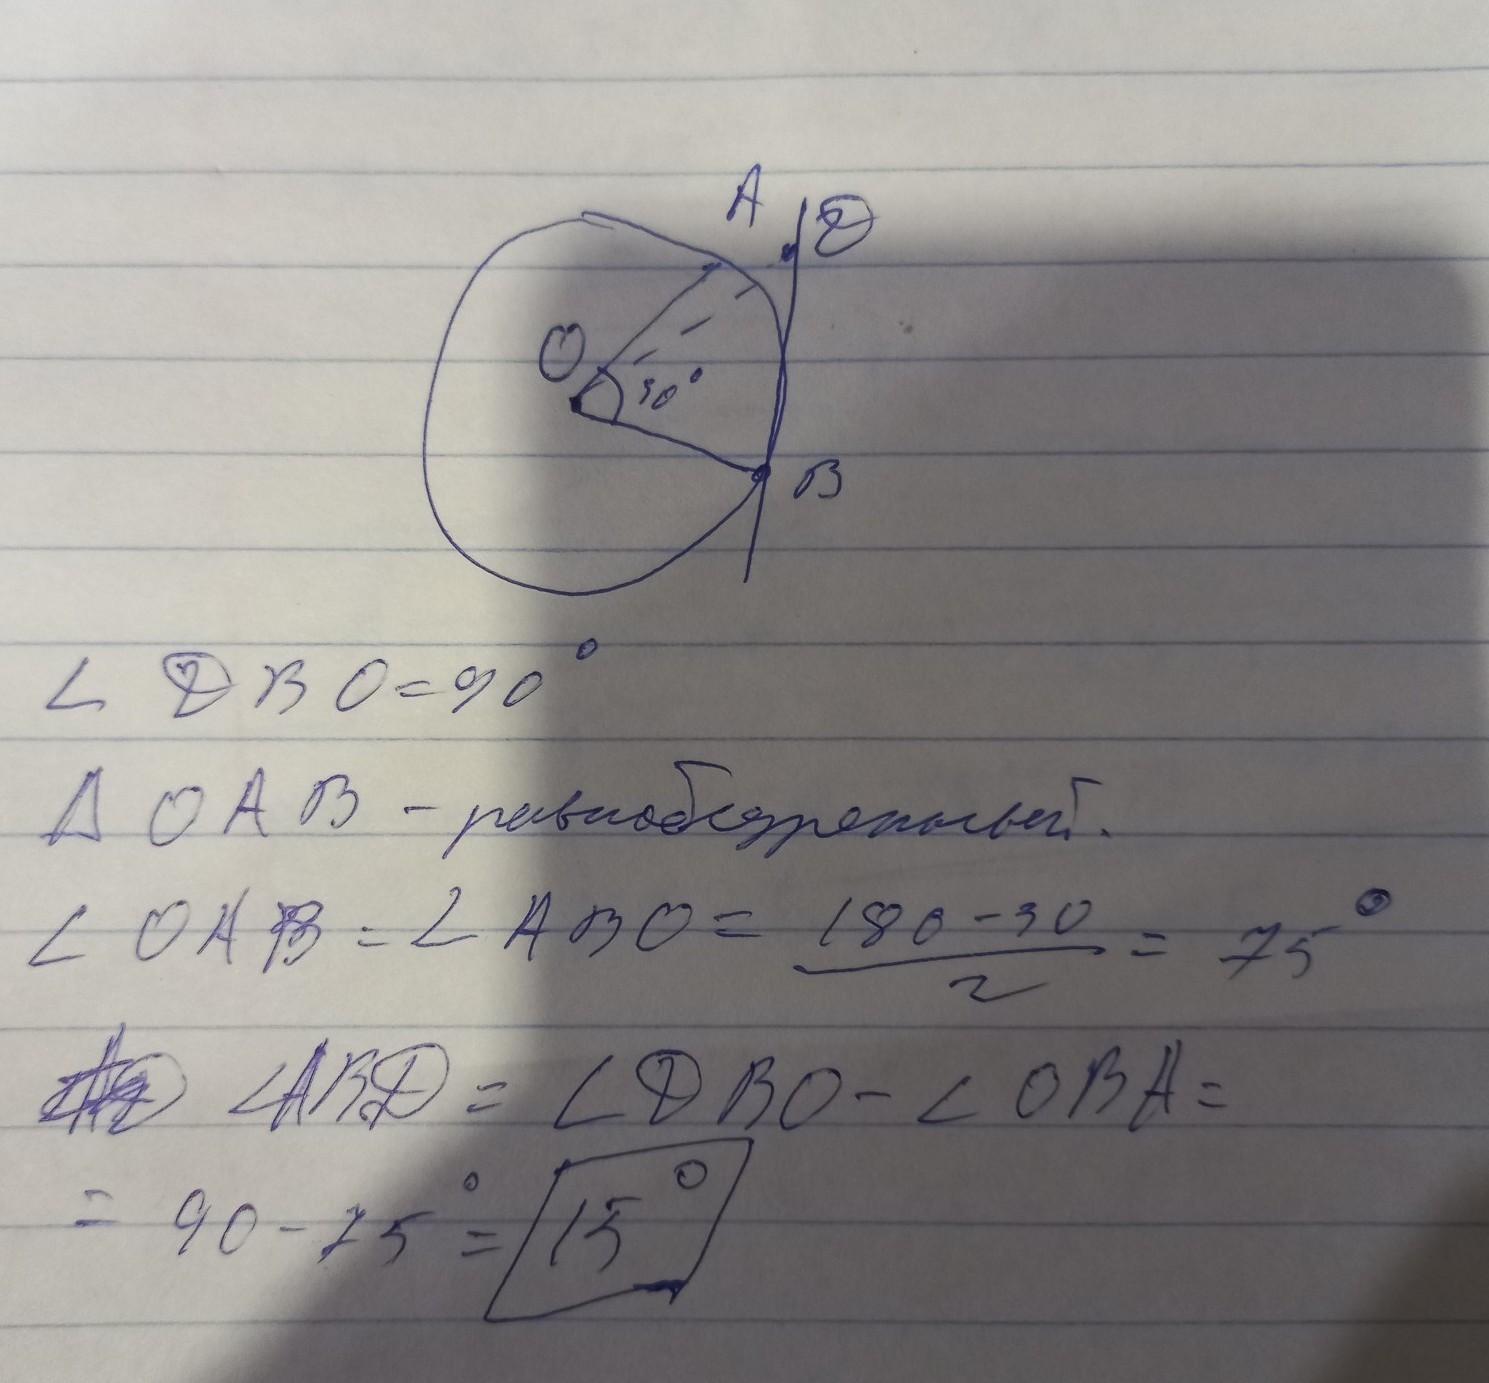 A D
O 30°
B
∠ DBO = 90°
Δ OAB - равнобедренный.
∠ OAB = ∠ ABO = (180 - 30)/2 = 75°
∠ABD = ∠DBO - ∠OBA =
= 90 - 75° = 15°